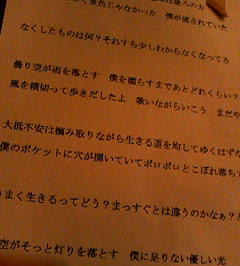 景色じゃなかった 僕が流されていた
なくしたものは何？それすら少しわからなくなってる
曇り空が雨を落とす 僕を濡らすまであとどれくらい？
風を横切って歩きだしたよ 歌いながらいこう まだや
大抵不安は摘み取りながら生きる道を均してゆくはずな
僕のポケットに穴が開いていてポロポロとこぼれ落ち
うまく生きるってどう？まっすぐとは違うのかなぁ？
空がそっと灯りを落とす 僕に足りない優しい光